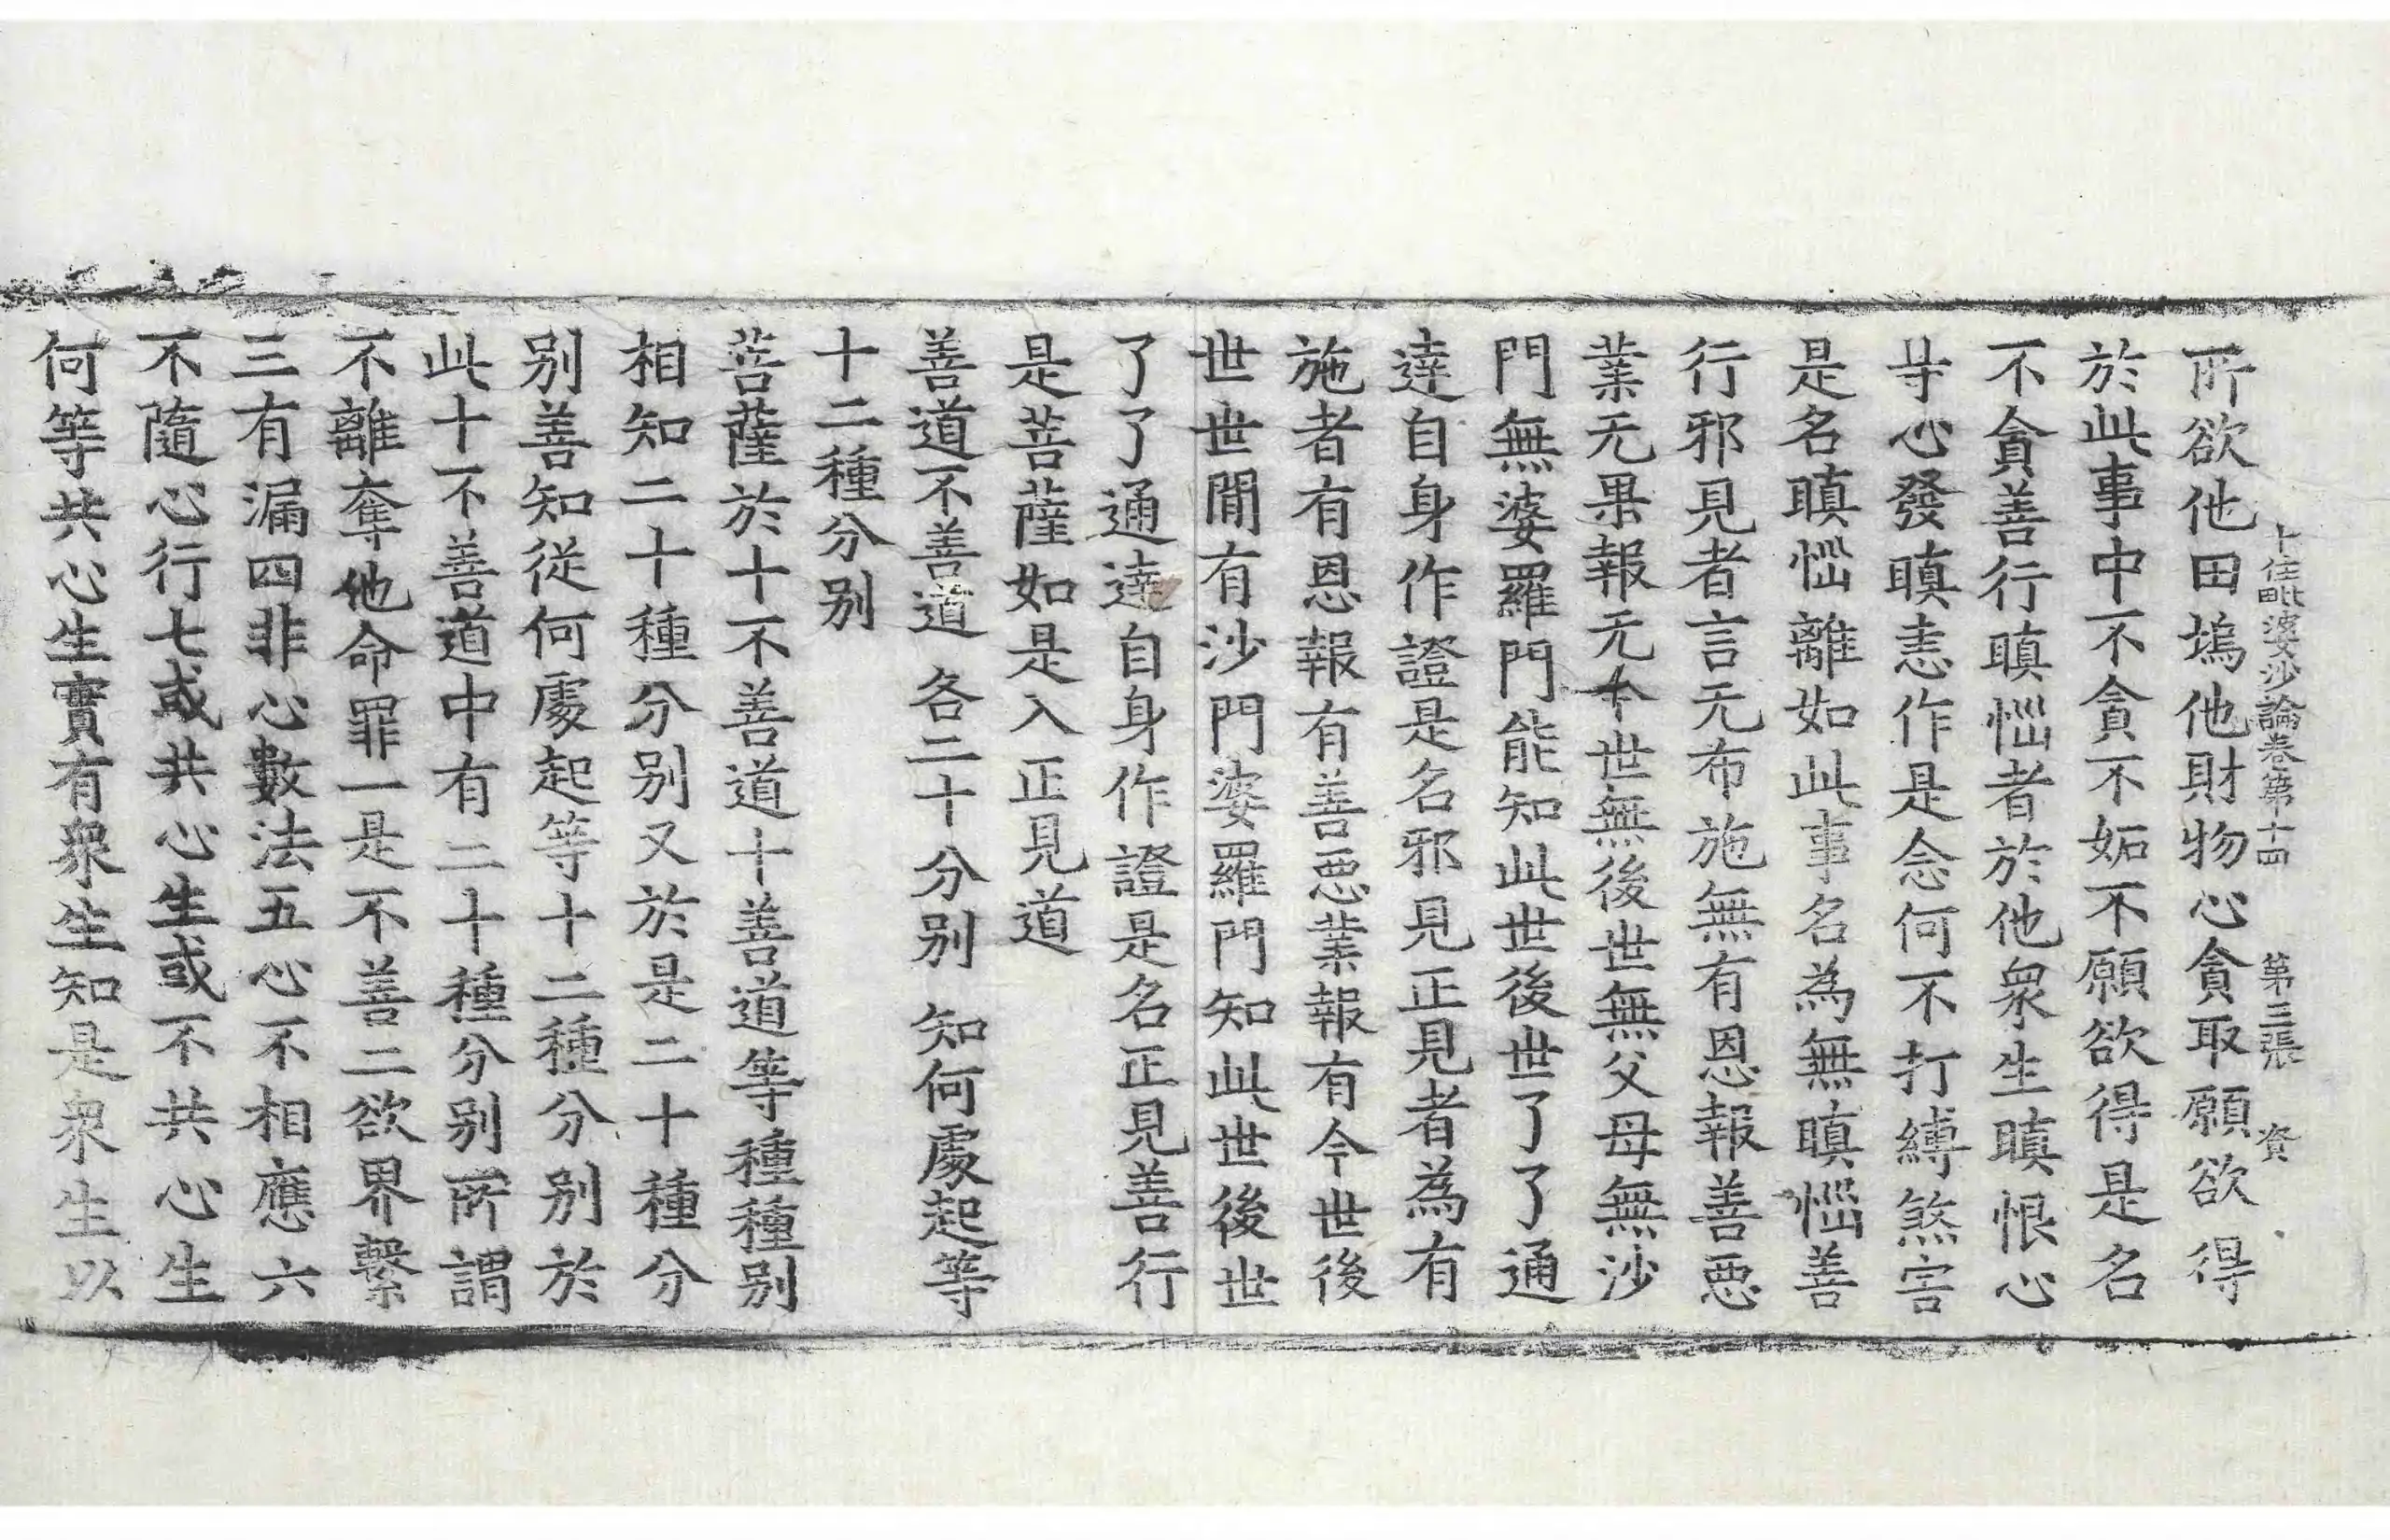 十住毗婆沙論卷第十四 第三張 資
所欲他田塢他財物心貪取願欲得
於此事中不貪不妬不願欲得是名
不貪善行瞋惱者於他衆生瞋恨心
䒭心發瞋恚作是念何不打縛煞害
是名瞋惱離如此事名為無瞋惱善
行邪見者言无布施無有恩報善惡
業无果報无今世無後世無父母無沙
門無婆羅門能知此世後世了了通
達自身作證是名邪見正見者為有
施者有恩報有善惡業報有今世後
世世閒有沙門婆羅門知此世後世
了了通達自身作證是名正見善行
是菩薩如是入正見道
善道不善道 各二十分別 知何處起等
十二種分別
菩薩於十不善道十善道等種種別
相知二十種分別又於是二十種分
別善知從何處起等十二種分別於
此十不善道中有二十種分別所謂
不離奪他命罪一是不善二欲界繫
三有漏四非心數法五心不相應六
不隨心行七或共心生或不共心生
何等共心生實有衆生知是衆生以